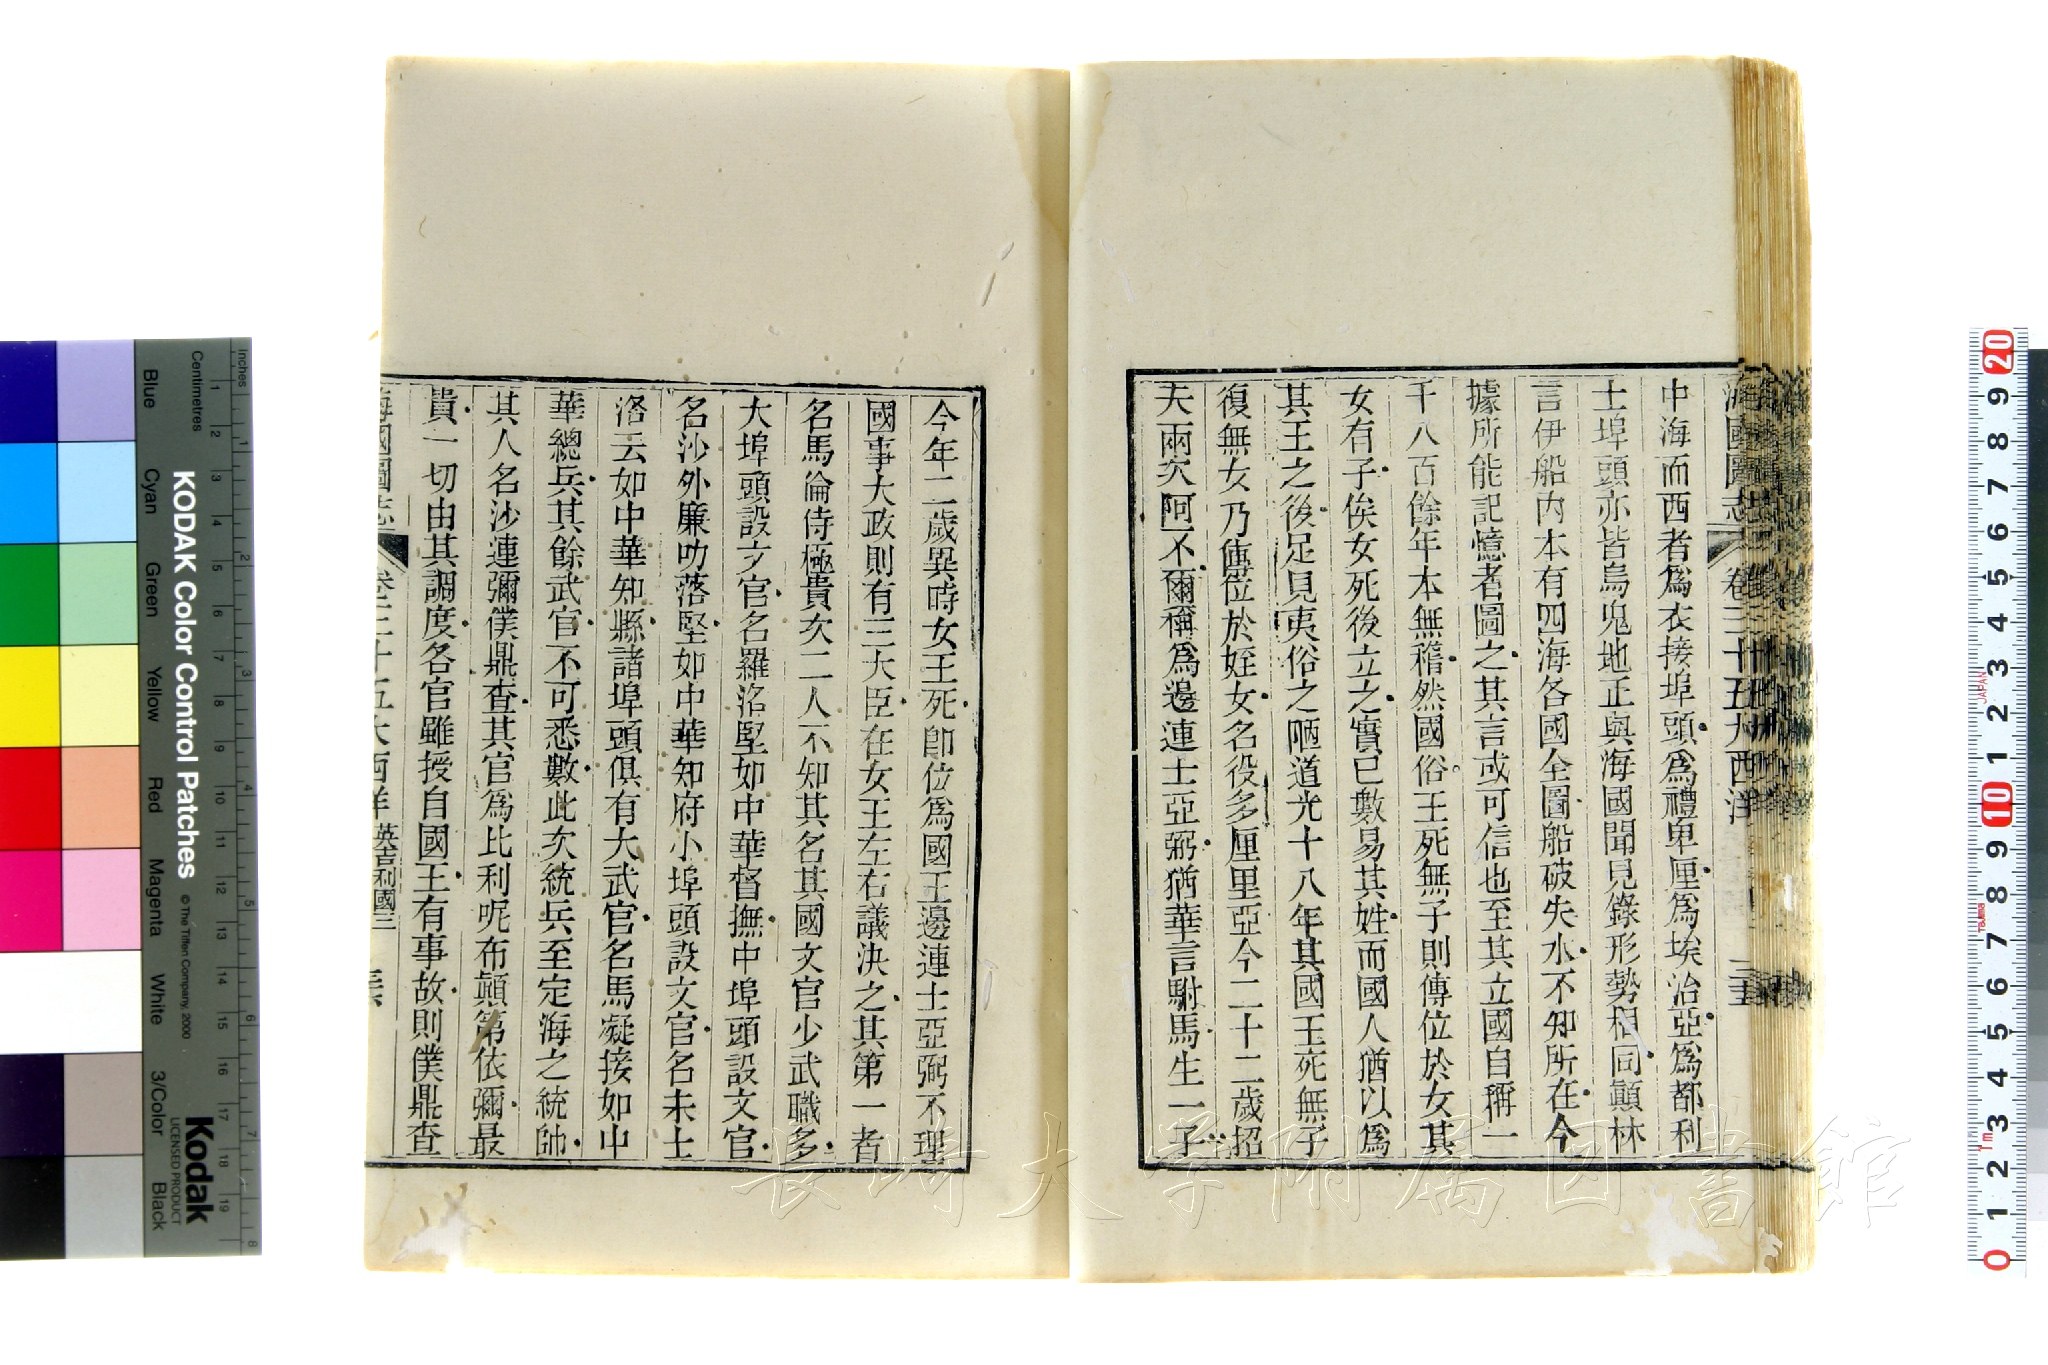 海國圖志 卷三十五大西洋
中海而西者爲衣接埠頭爲禮卑厘爲埃治亞爲都利
士埠頭亦皆烏鬼地正與海國聞見錄形勢相同顛林
言伊船內本有四海各國全圖船破失水不知所在今
據所能記憶者圖之其言或可信也至其立國自稱一
千八百餘年本無稽然國俗王死無子則傳位於女其
女有子俟女死後立之實已數易其姓而國人猶以爲
其王之後足見夷俗之陋道光十八年其國王死無子
復無女乃傳位於姪女名役多厘里亞今二十二歲招
夫兩次阿不爾稱爲邊連士亞弼猶華言駙馬生一子
今年二歲異時女王死卽位爲國王邊連士亞弼不理
國事大政則有三大臣在女王左右議決之其第一者
名馬倫侍極貴次二人不知其名其國文官少武職多
大埠頭設文官名羅洛堅如中華督撫中埠頭設文官
名沙外廉叻落堅如中華知府小埠頭設文官名未士
洛云如中華知縣諸埠頭俱有大武官名馬凝接如中
華總兵其餘武官不可悉數此次統兵至定海之統帥
其人名沙連彌僕鼎查其官爲比利呢布顛第依彌最
貴一切由其調度各官雖授自國王有事故則僕鼎查
海國圖志 卷三十五大西洋 英吉利國三
長崎大学附属図書館
KODAK Color Control Patches
© The Tiffen Company, 2000
Kodak
LICENSED PRODUCT
Inches
Centimetres
Blue
Cyan
Green
Yellow
Red
Magenta
White
3/Color
Black
JAPAN